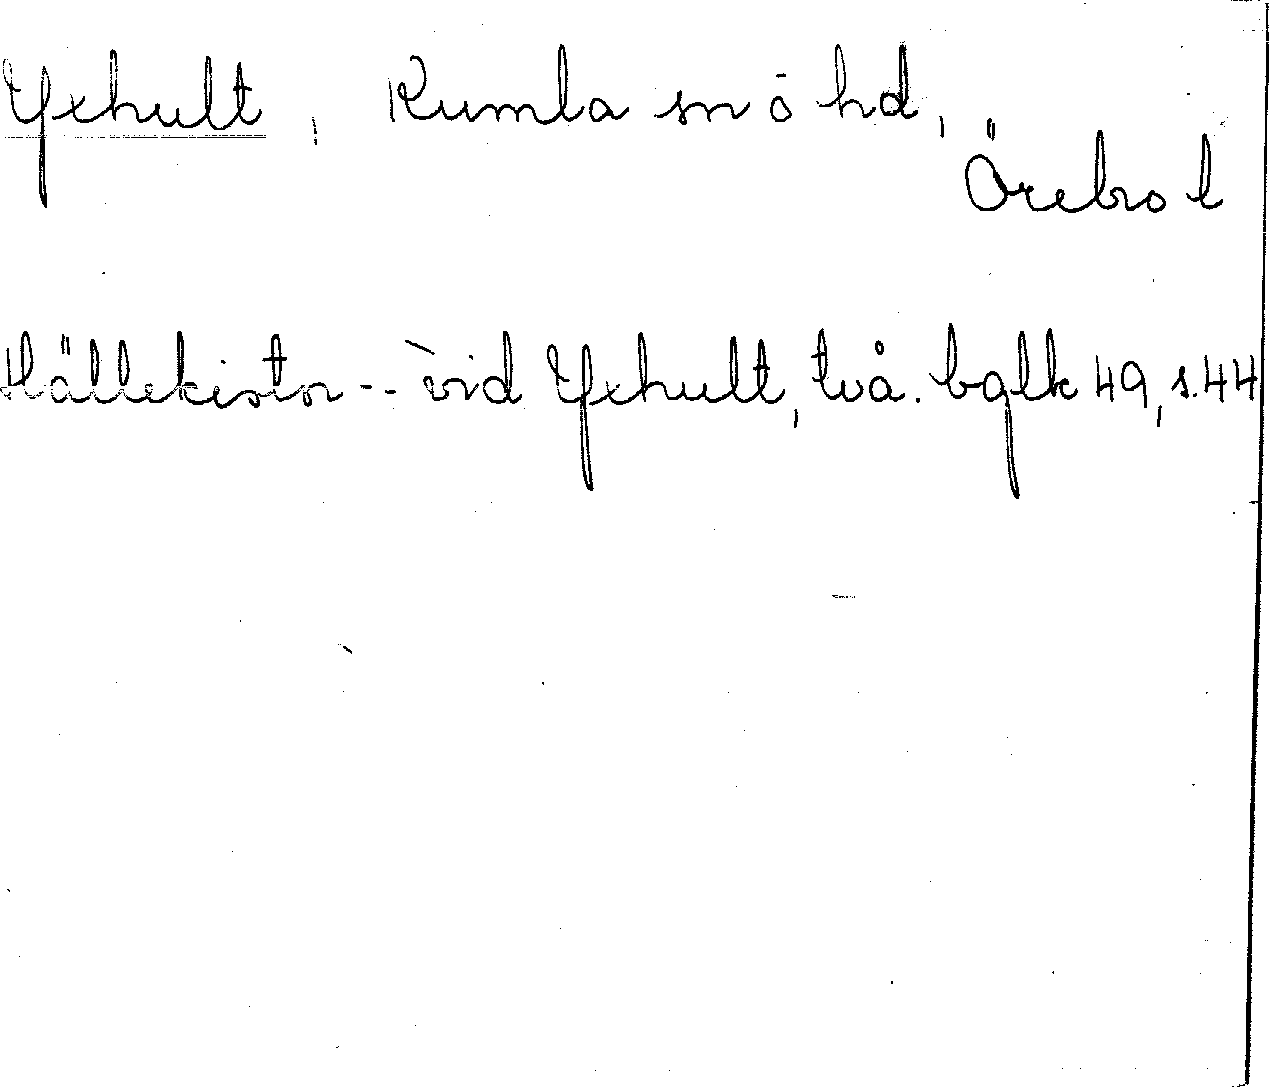 Yxhult, Kumla sn o hd,
Örebro l
Hällekistor -- vid Yxhult, två. bglk 49, s. 44